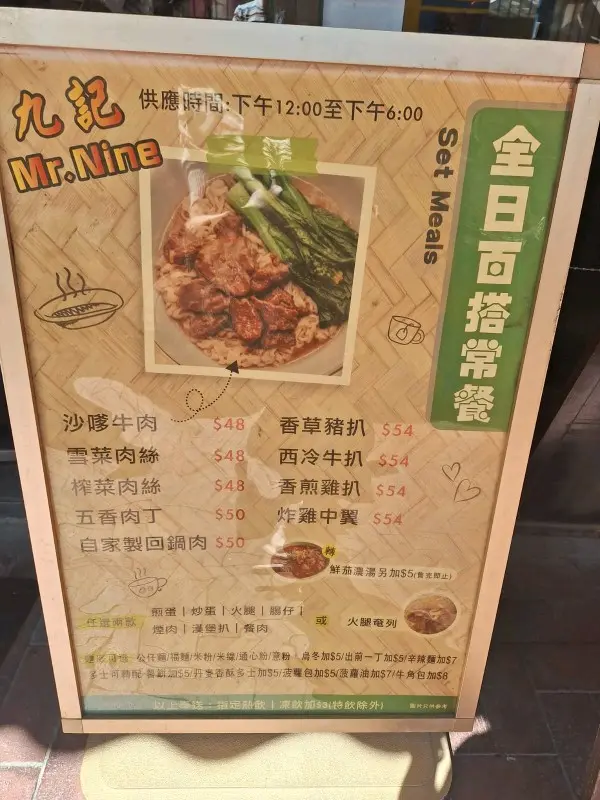 九記
Mr.Nine
供應時間:下午12:00至下午6:00
全日百搭常餐
Set Meals
沙嗲牛肉 $48
雪菜肉絲 $48
榨菜肉絲 $48
五香肉丁 $50
自家製回鍋肉 $50
香草豬扒 $54
西冷牛扒 $54
香煎雞扒 $54
炸雞中翼 $54
轉
鮮茄濃湯另加$5(售完即止)
任選兩款
煎蛋 | 炒蛋 | 火腿 | 腸仔 |
煙肉 | 漢堡扒 | 餐肉
或 火腿奄列
公仔麵/福麵/米粉/米線/通心粉/意粉 | 烏冬加$5/出前一丁加$5/辛辣麵加$7
多士可轉配 加$5/丹麥香酥多士加$5/菠蘿包加$5/菠蘿油加$7/牛角包加$8
以上 指定熱飲 | 凍飲加$3(特飲除外)
圖片只供參考